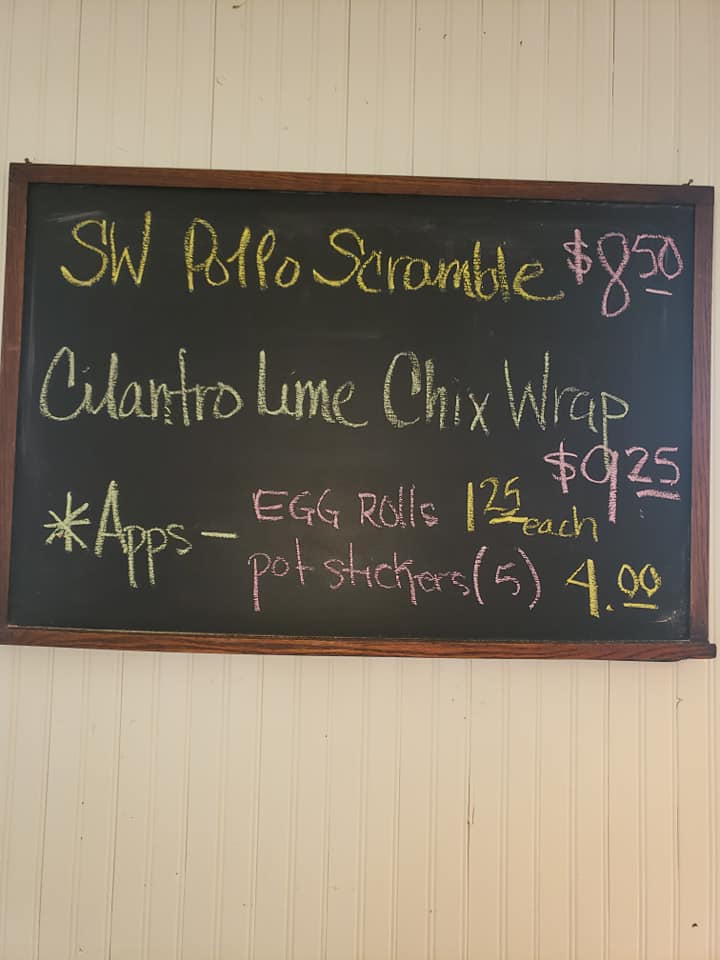 SW Pollo Scramble $8 50
Cilantro Lime Chix Wrap
$9 25
*Apps - EGG Rolls 1 25 each
pot stickers (5) 4.00